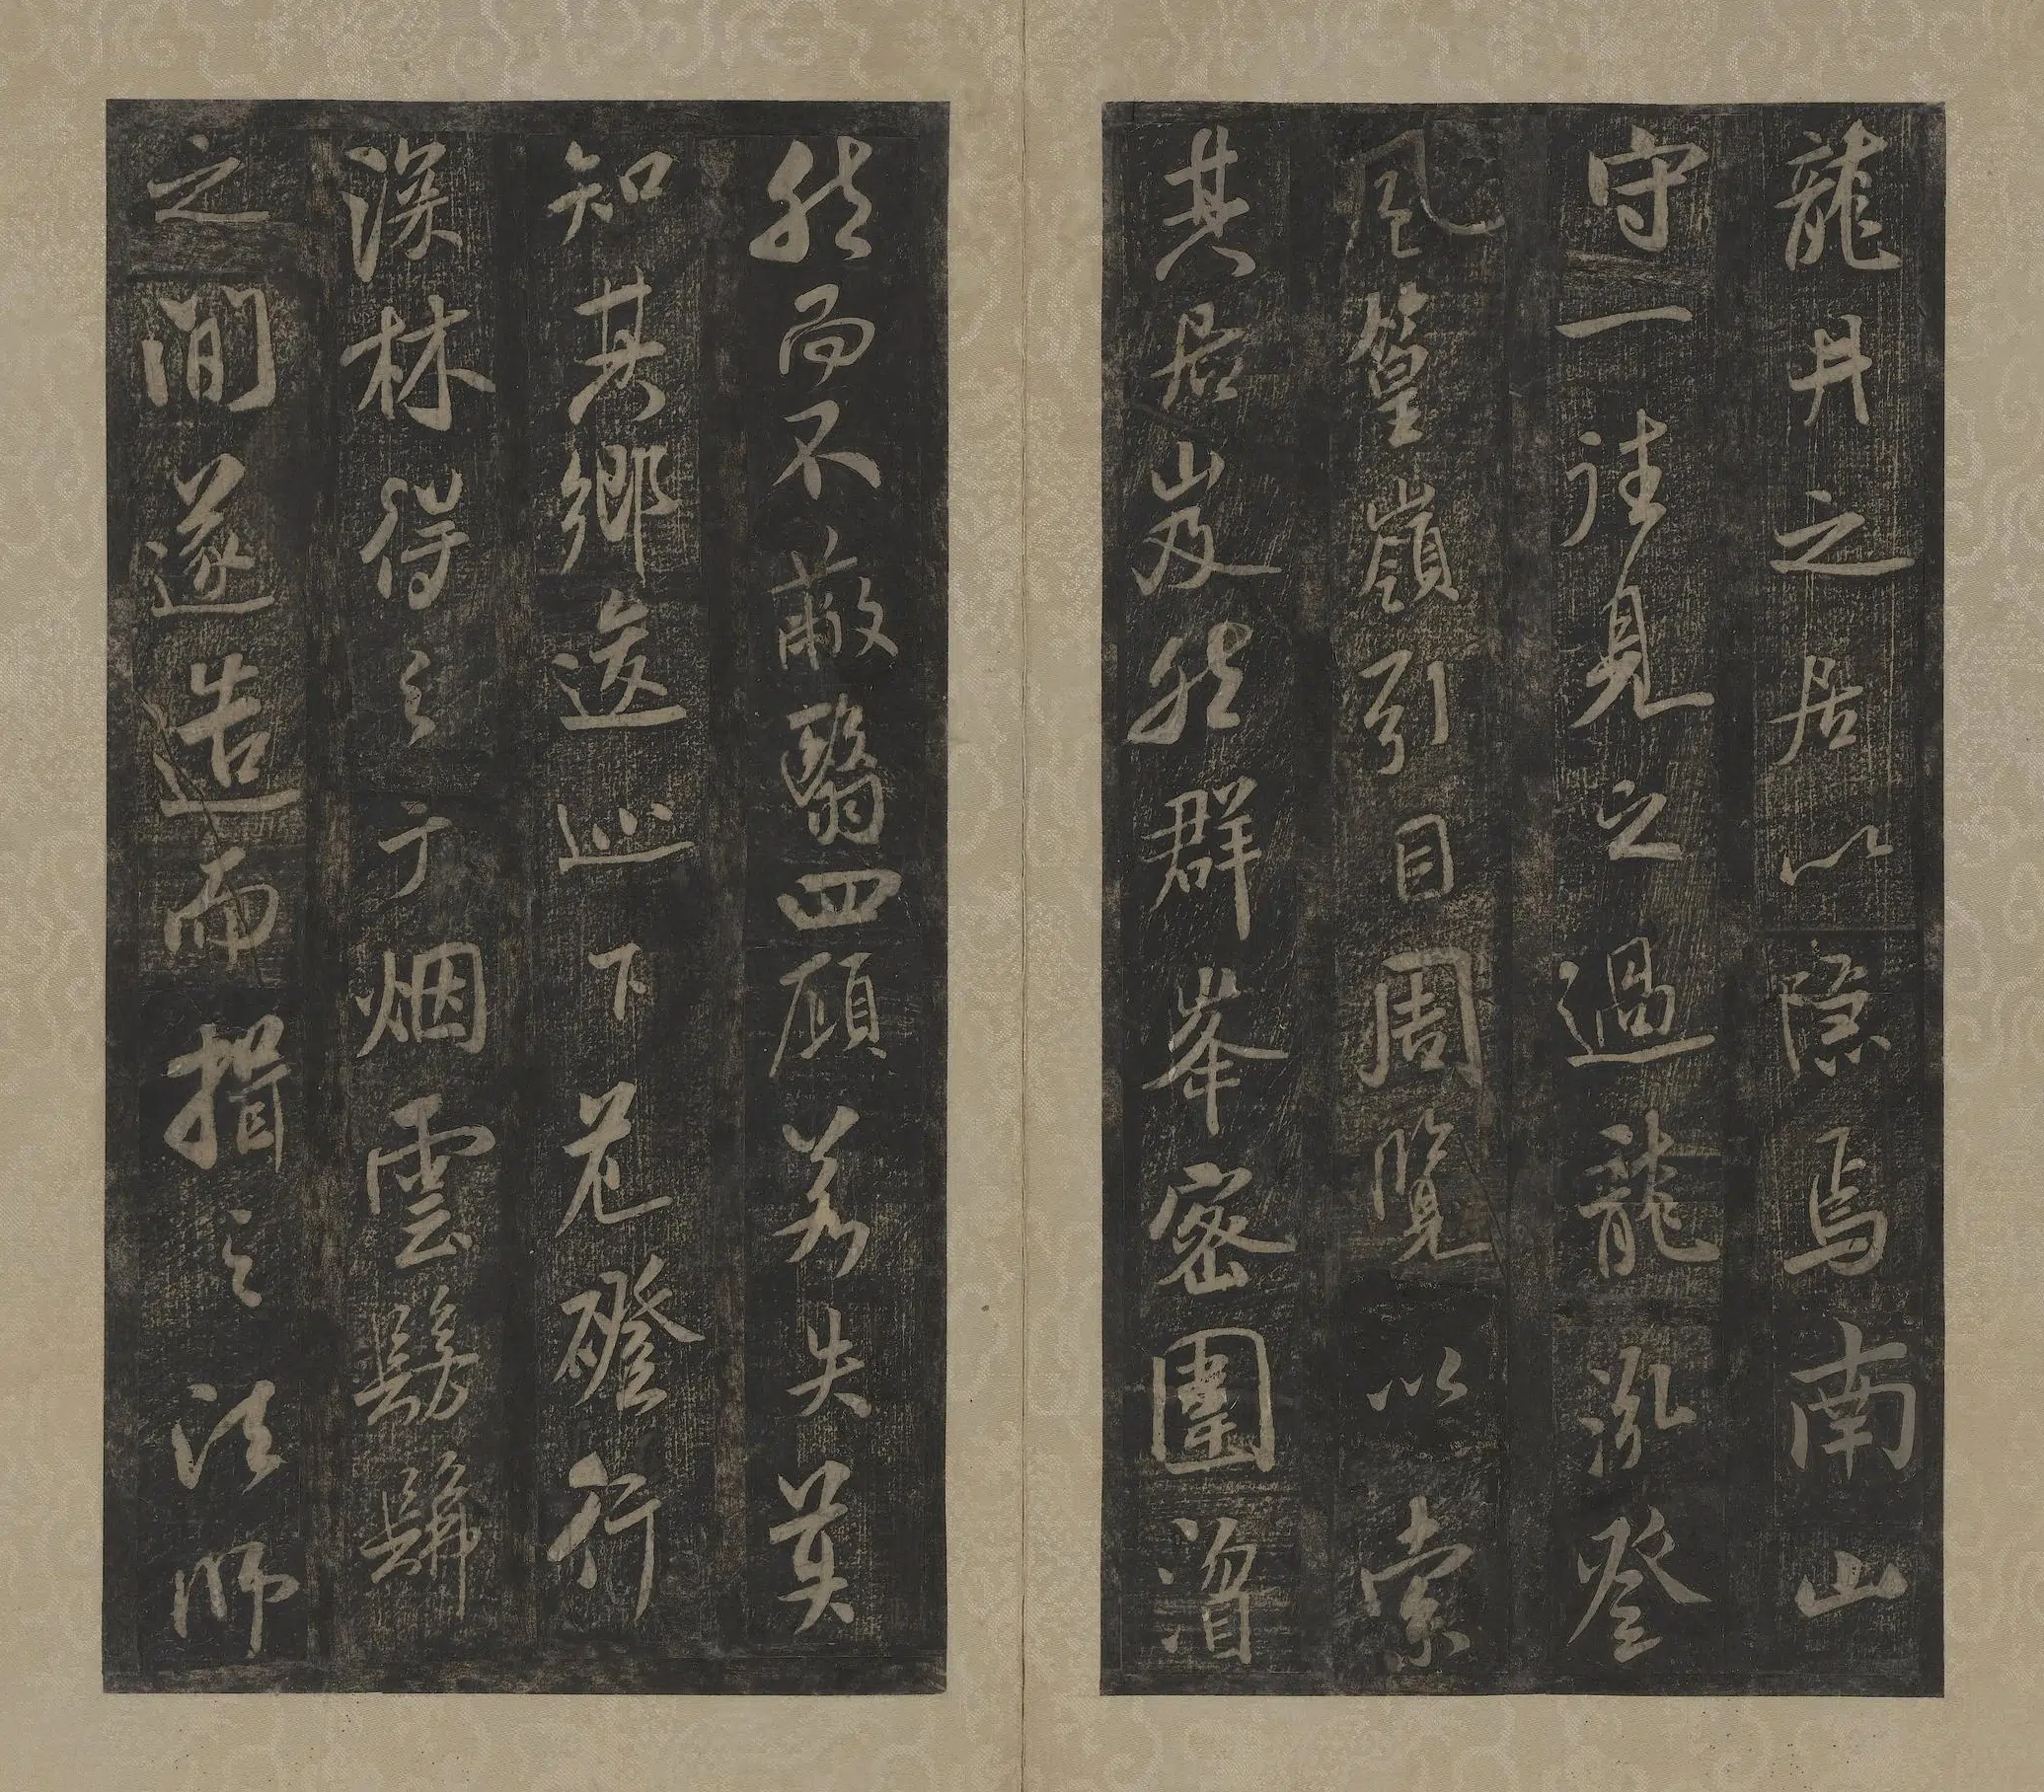 龍井之居以隱焉南山
守一往見之過龍泓登
風篁嶺引目周覽以索
其居岌然群峯密圍溜
然而不蔽翳四顧若失莫
知其鄉逡巡下危磴行
深林得之于烟雲髣髴
之間遂造而揖之法師